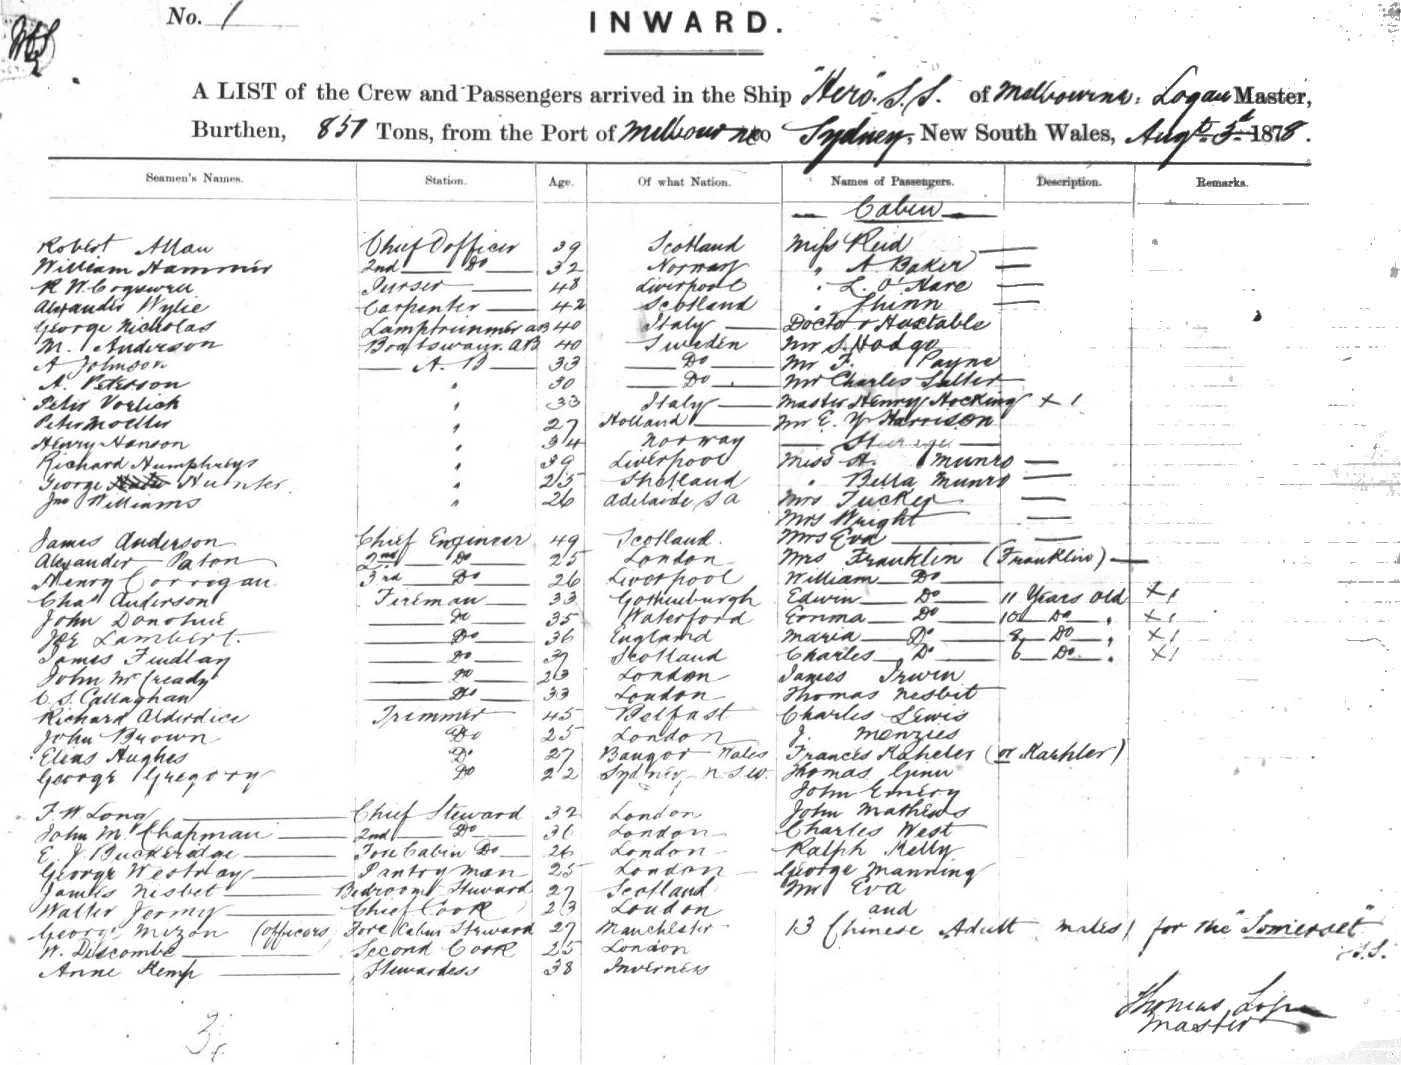 No. 1
INWARD.
A LIST of the Crew and Passengers arrived in the Ship "Hero" S.S. of Melbourne, Logan Master,
Burthen, 857 Tons, from the Port of Melbourne to Sydney, New South Wales, Augt 3d 1878.
Seamen's Names. Station. Age. Of what Nation. Names of Passengers. Description. Remarks.
Cabin
Robert Allan Chief Officer 39 Scotland Miss Reid
William Hammer 2nd Do 32 Norway " A Baker
R W Cogswell Purser 48 Liverpool " L. O'Hare
Alexander Wylie Carpenter 42 Scotland "
George Nicholas Lamptrimmer AB 40 Italy Doctor Huxtable
M. Anderson Boatswain AB 40 Sweden Mr S. Hodge
A Johnson A.B 33 Do Mr F. Payne
A. Peterson " 30 Do Mr Charles Salter
Peter Vorlick " 33 Italy Master Henry Hocking X 1
Peter Moller " 27 Holland Mr E. Y. Harrison
Henry Hanson " 34 Norway Steerage
Richard Humphreys " 39 Liverpool Miss A. Munro
George Hunter " 25 Shetland " Bella Munro
Jno Williams " 26 Adelaide S A Mrs Tucker
Mrs Wright
James Anderson Chief Engineer 49 Scotland Mrs Eva
Alexander Paton 2nd Do 25 London Mrs Franklin (Franklin)
Henry Corrigan 3rd Do 26 Liverpool William Do
Chas Anderson Fireman 33 Gothenburgh Edwin Do 11 Years old X 1
John Donohue Do 35 Waterford Emma Do 10 Do " X 1
Joe Lambert Do 36 England Maria Do 8 Do " X 1
James Findlay Do 37 Scotland Charles Do 6 Do " X 1
John McCready Do 23 London James Irwin
C S. Callaghan Do 33 London Thomas Nesbit
Richard Alderdice Trimmer 45 Belfast Charles Lewis
John Brown Do 25 London J. Menzies
Elias Hughes Do 27 Bangor Wales Frances Kaheler (or Kaehler)
George Gregory Do 22 Sydney N.S.W. Thomas Gunn
John Emery
F. W. Long Chief Steward 32 London John Mathews
John M Chapman 2nd Do 36 London Charles West
E. J. Buckeridge Fore Cabin Do 26 London Ralph Kelly
George Westway Pantryman 25 London George Manning
James Nesbit Bedroom Steward 27 Scotland Mr Eva
Walter Jermy Chief Cook 23 London and
George Mizon (Officers) Fore Cabin Steward 27 Manchester 13 Chinese Adult males, for the "Somerset"
W. Discombe Second Cook 25 London S.S.
Anne Kemp Stewardess 38 Inverness
Thomas Logan
Master